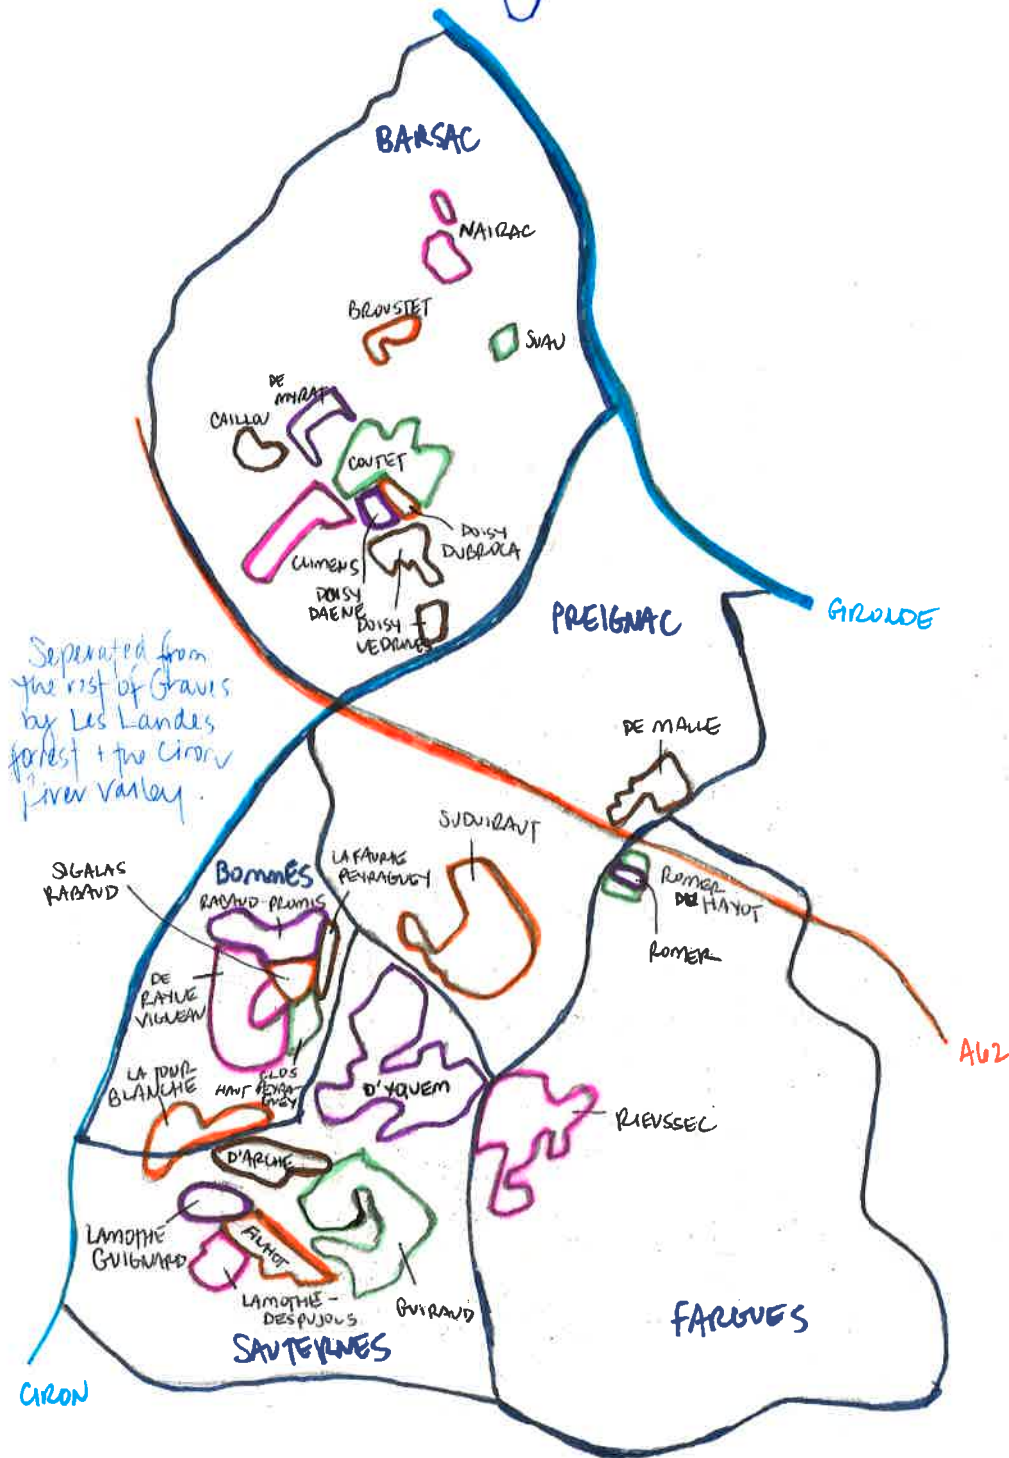 BARSAC
NAIRAC
BROUSTET
SUAU
DE
MYRAT
CAILLOU
COUTET
CLIMENS
DOISY
DUBROCA
DOISY
DAENE
DOISY
VEDRINES
PREIGNAC
GIRONDE
Seperated from
the rest of Graves
by Les Landes
forrest + the Ciron
river valley.
DE MALLE
SUDUIRAUT
SIGALAS
RABAUD
BOMMÉS
RABAUD-PROMIS
LAFAURIE
PEYRAGUEY
ROMER
DU HAYOT
ROMER
DE
RAYNE
VIGNEAU
A62
LA TOUR
BLANCHE
CLOS
HAUT PEYRA-
GUEY
D'YQUEM
RIEUSSEC
D'ARCHE
LAMOTHE
GUIGNARD
FILHOT
LAMOTHE-
DESPUJOLS
GUIRAUD
SAUTERNES
FARGUES
CIRON